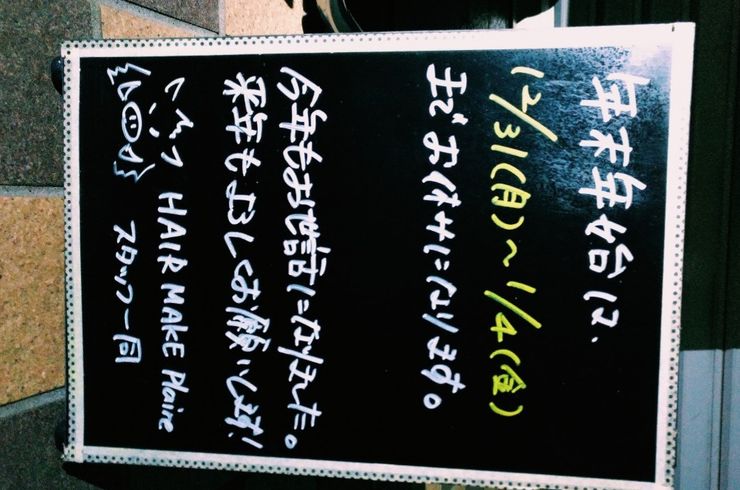 年末年始は、
12/31(月)〜1/4(金)
までお休みになります。
今年もお世話になりました。
来年もよろしくお願いします!
HAIR MAKE Plaire
スタッフ一同